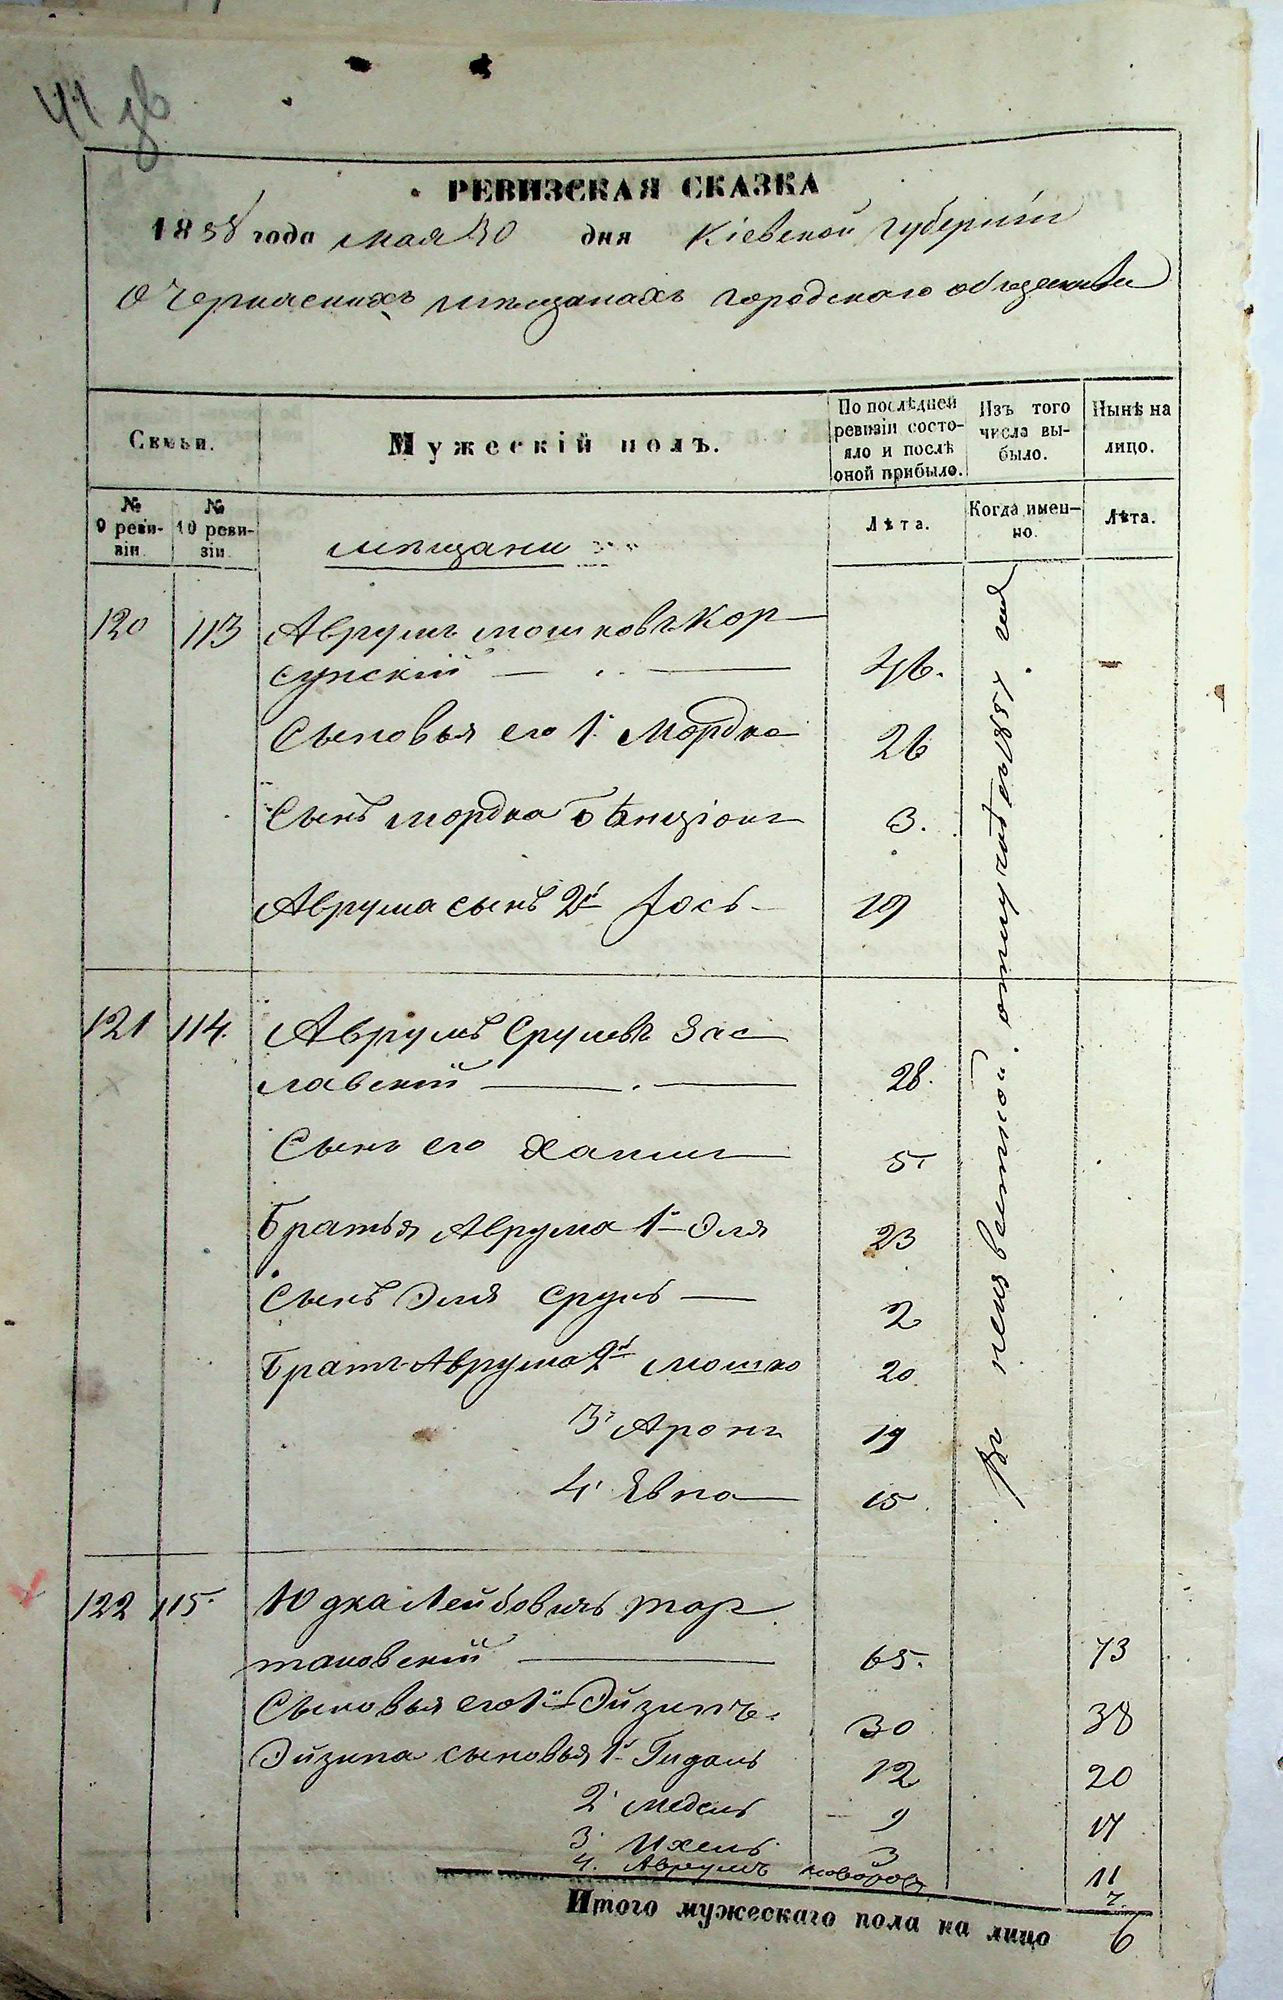 41 зв
РЕВИЗСКАЯ СКАЗКА
1858 года мая 30 дня Кіевской губерніи
О Черкаскихъ мѣщанахъ городскаго общества
Семьи.
Мужескій полъ.
По послѣдней ревизіи состояло и послѣ оной прибыло.
Изъ того числа выбыло.
Нынѣ на лицо.
№ 9 ревизіи
№ 10 ревизіи.
мѣщани
Лѣта.
Когда именно.
Лѣта.
120 113 Аврумъ Мошковъ Кор-
сунскій 46. –
Сыновья его 1й Мордко 26
Сынъ Мордка Бенціонъ 3.
Аврума сынъ 2й Іось 19
121 114. Аврумъ Срулевъ Зас
лавскій 28.
Сынъ его Хаимъ 5.
Братья Аврума 1й Эля 23
Сынъ Эля Сруль 2
Братъ Аврума 2й Мошко 20
3й Аронъ 19
4й Евна 15
въ неизвестной отлучкѣ съ 1857. года
122 115. Юдка Лейбовичъ Тар
таковскій 65. 73
Сыновья его 1й Эйзипъ. 30 38
Эйзипа сыновья 1й Гидаль 12 20
2й Медель 9 17
3. Ихель 3 11
4. Аврумъ новорож. 7.
Итого мужескаго пола на лицо 6